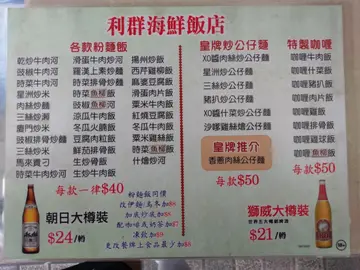 利群海鮮飯店
各款粉麵飯
乾炒牛肉河
豉椒牛肉河
時菜牛肉河
星洲炒米
肉絲炒麵
三絲炒瀨
廈門炒米
三絲炒米
馬來貴刁
時菜牛肉炒河
滑蛋牛肉炒河
羅漢上素炒麵
時菜魚柳炒河
時菜排骨炒麵
豉椒魚柳河
涼瓜牛肉河
豉椒排骨炒麵
鮮茄排骨飯
生炒骨飯
生炒牛肉河
揚州炒飯
西芹雞柳飯
麻婆豆腐飯
滑蛋肉片飯
豆腐魚柳飯
粟米牛肉飯
紅燒豆腐飯
冬瓜火腩飯
豆腐肉粒飯
粟米斑塊飯
時菜魚柳飯
什燴炒河
每款一律$40
皇牌炒公仔麵
XO醬肉絲炒公仔麵
星洲炒公仔麵
三絲炒公仔麵
豬扒炒公仔麵
XO醬什菜炒公仔麵
沙嗲雞絲燴公仔麵
皇牌推介
香蔥肉絲公仔麵
每款$50
特製咖喱
咖喱牛肉飯
咖喱什菜飯
咖喱豬扒飯
咖喱肉片飯
咖喱排骨飯
咖喱雞球飯
咖喱魚柳飯
每款$50
朝日大樽裝
$24/樽
粉麵飯另價
改伊麵/烏冬加$8
加底炒底加$8
配咖啡或奶茶加$7
凍飲加$9
更改餐牌上食品最少加$5
獅威大樽裝
世界五大專飲啤酒
$21/樽